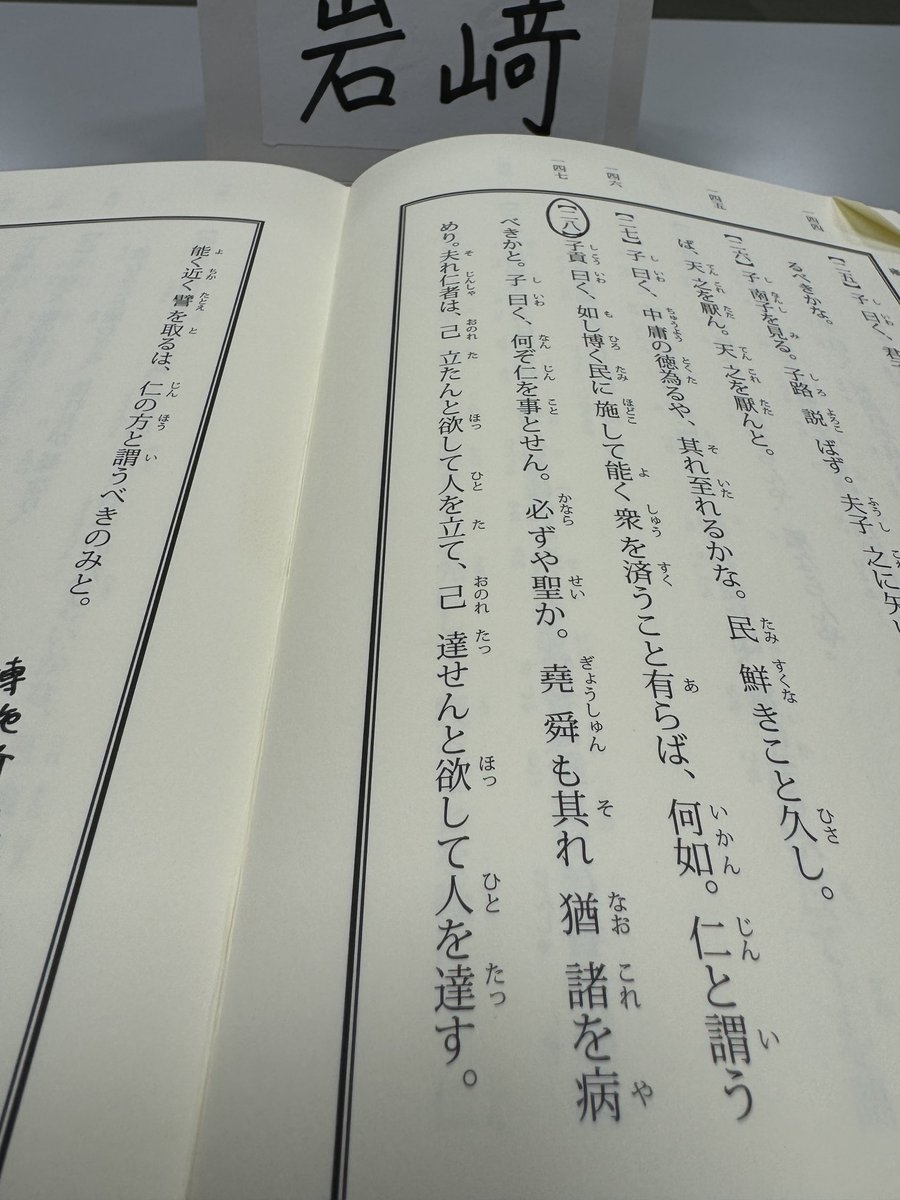 岩﨑
一四四
一四五
一四六
一四七
【二五】子曰く、君子
るべきかな。
【二六】子南子を見る。子路説ばず。夫子之に矢
ば、天之を厭ん。天之を厭んと。
【二七】子曰く、中庸の徳為るや、其れ至れるかな。民鮮きこと久し。
【二八】子貢曰く、如し博く民に施して能く衆を済うこと有らば、何如。仁と謂う
べきかと。子曰く、何ぞ仁を事とせん。必ずや聖か。堯舜も其れ猶諸を病
めり。夫れ仁者は、己立たんと欲して人を立て、己達せんと欲して人を達す。
能く近く譬を取るは、仁の方と謂うべきのみと。